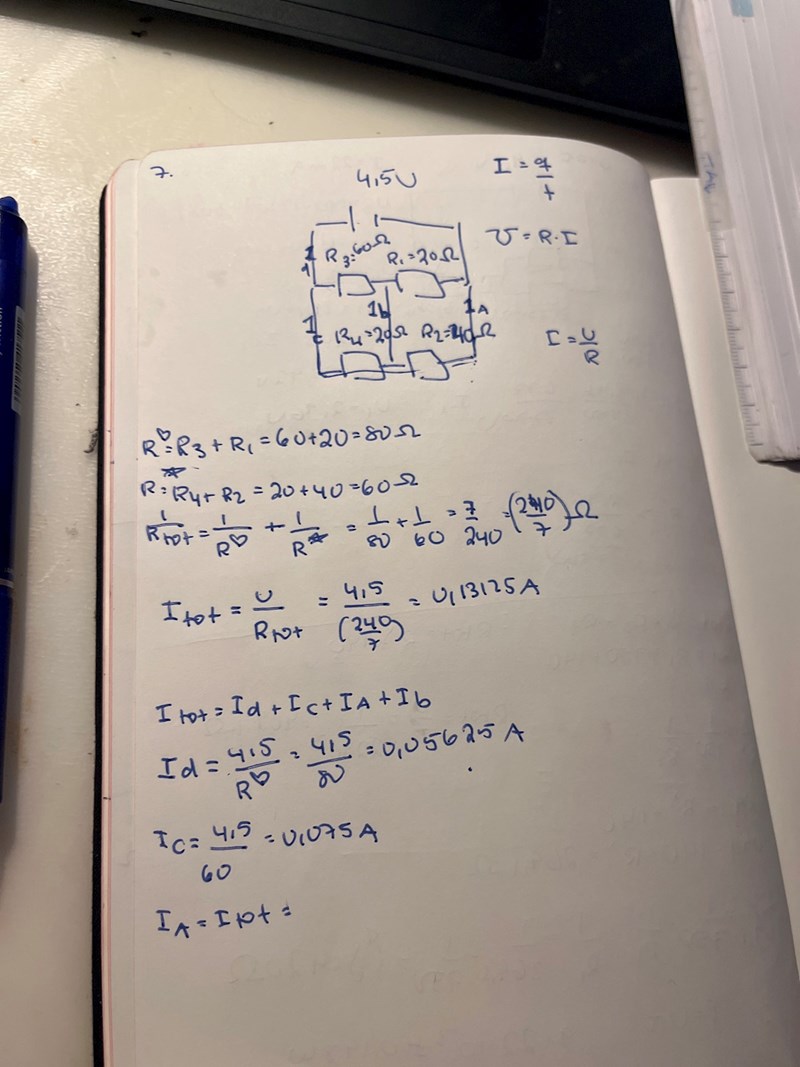 7.
4,5U
I = q/t
U = R·I
R3=60Ω R1=20Ω
Id
Ib
IA
Ic
R4=20Ω R2=40Ω
I = U/R
R♡=R3+R1=60+20=80Ω
R☆=R4+R2=20+40=60Ω
1/Rtot=1/R♡+1/R☆=1/80+1/60=7/240=(240/7)Ω
Itot=U/Rtot=4,5/(240/7)=0,13125A
Itot=Id+Ic+IA+Ib
Id=4,5/R♡=4,5/80=0,05625A
Ic=4,5/60=0,075A
IA=Itot=